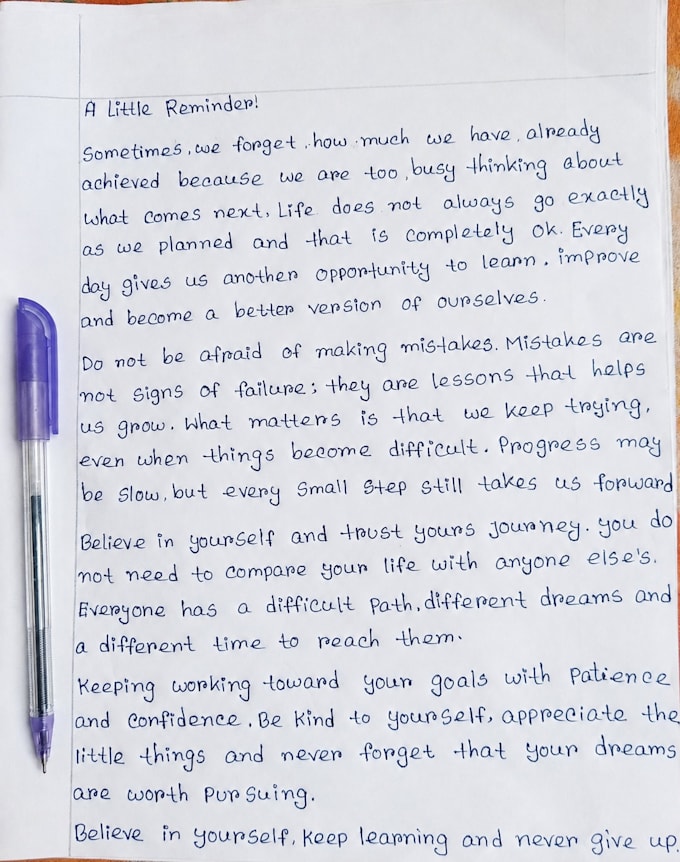 A Little Reminder!
Sometimes, we forget, how much we have, already
achieved because we are too, busy thinking about
what comes next, Life does not always go exactly
as we planned and that is completely ok. Every
day gives us another opportunity to learn, improve
and become a better version of ourselves.
Do not be afraid of making mistakes. Mistakes are
not signs of failure; they are lessons that helps
us grow. What matters is that we keep trying,
even when things become difficult. Progress may
be slow, but every small step still takes us forward
Believe in yourself and trust yours journey. you do
not need to compare your life with anyone else's.
Everyone has a difficult path, different dreams and
a different time to reach them.
Keeping working toward your goals with patience
and confidence. Be kind to yourself, appreciate the
little things and never forget that your dreams
are worth pursuing.
Believe in yourself, keep learning and never give up.